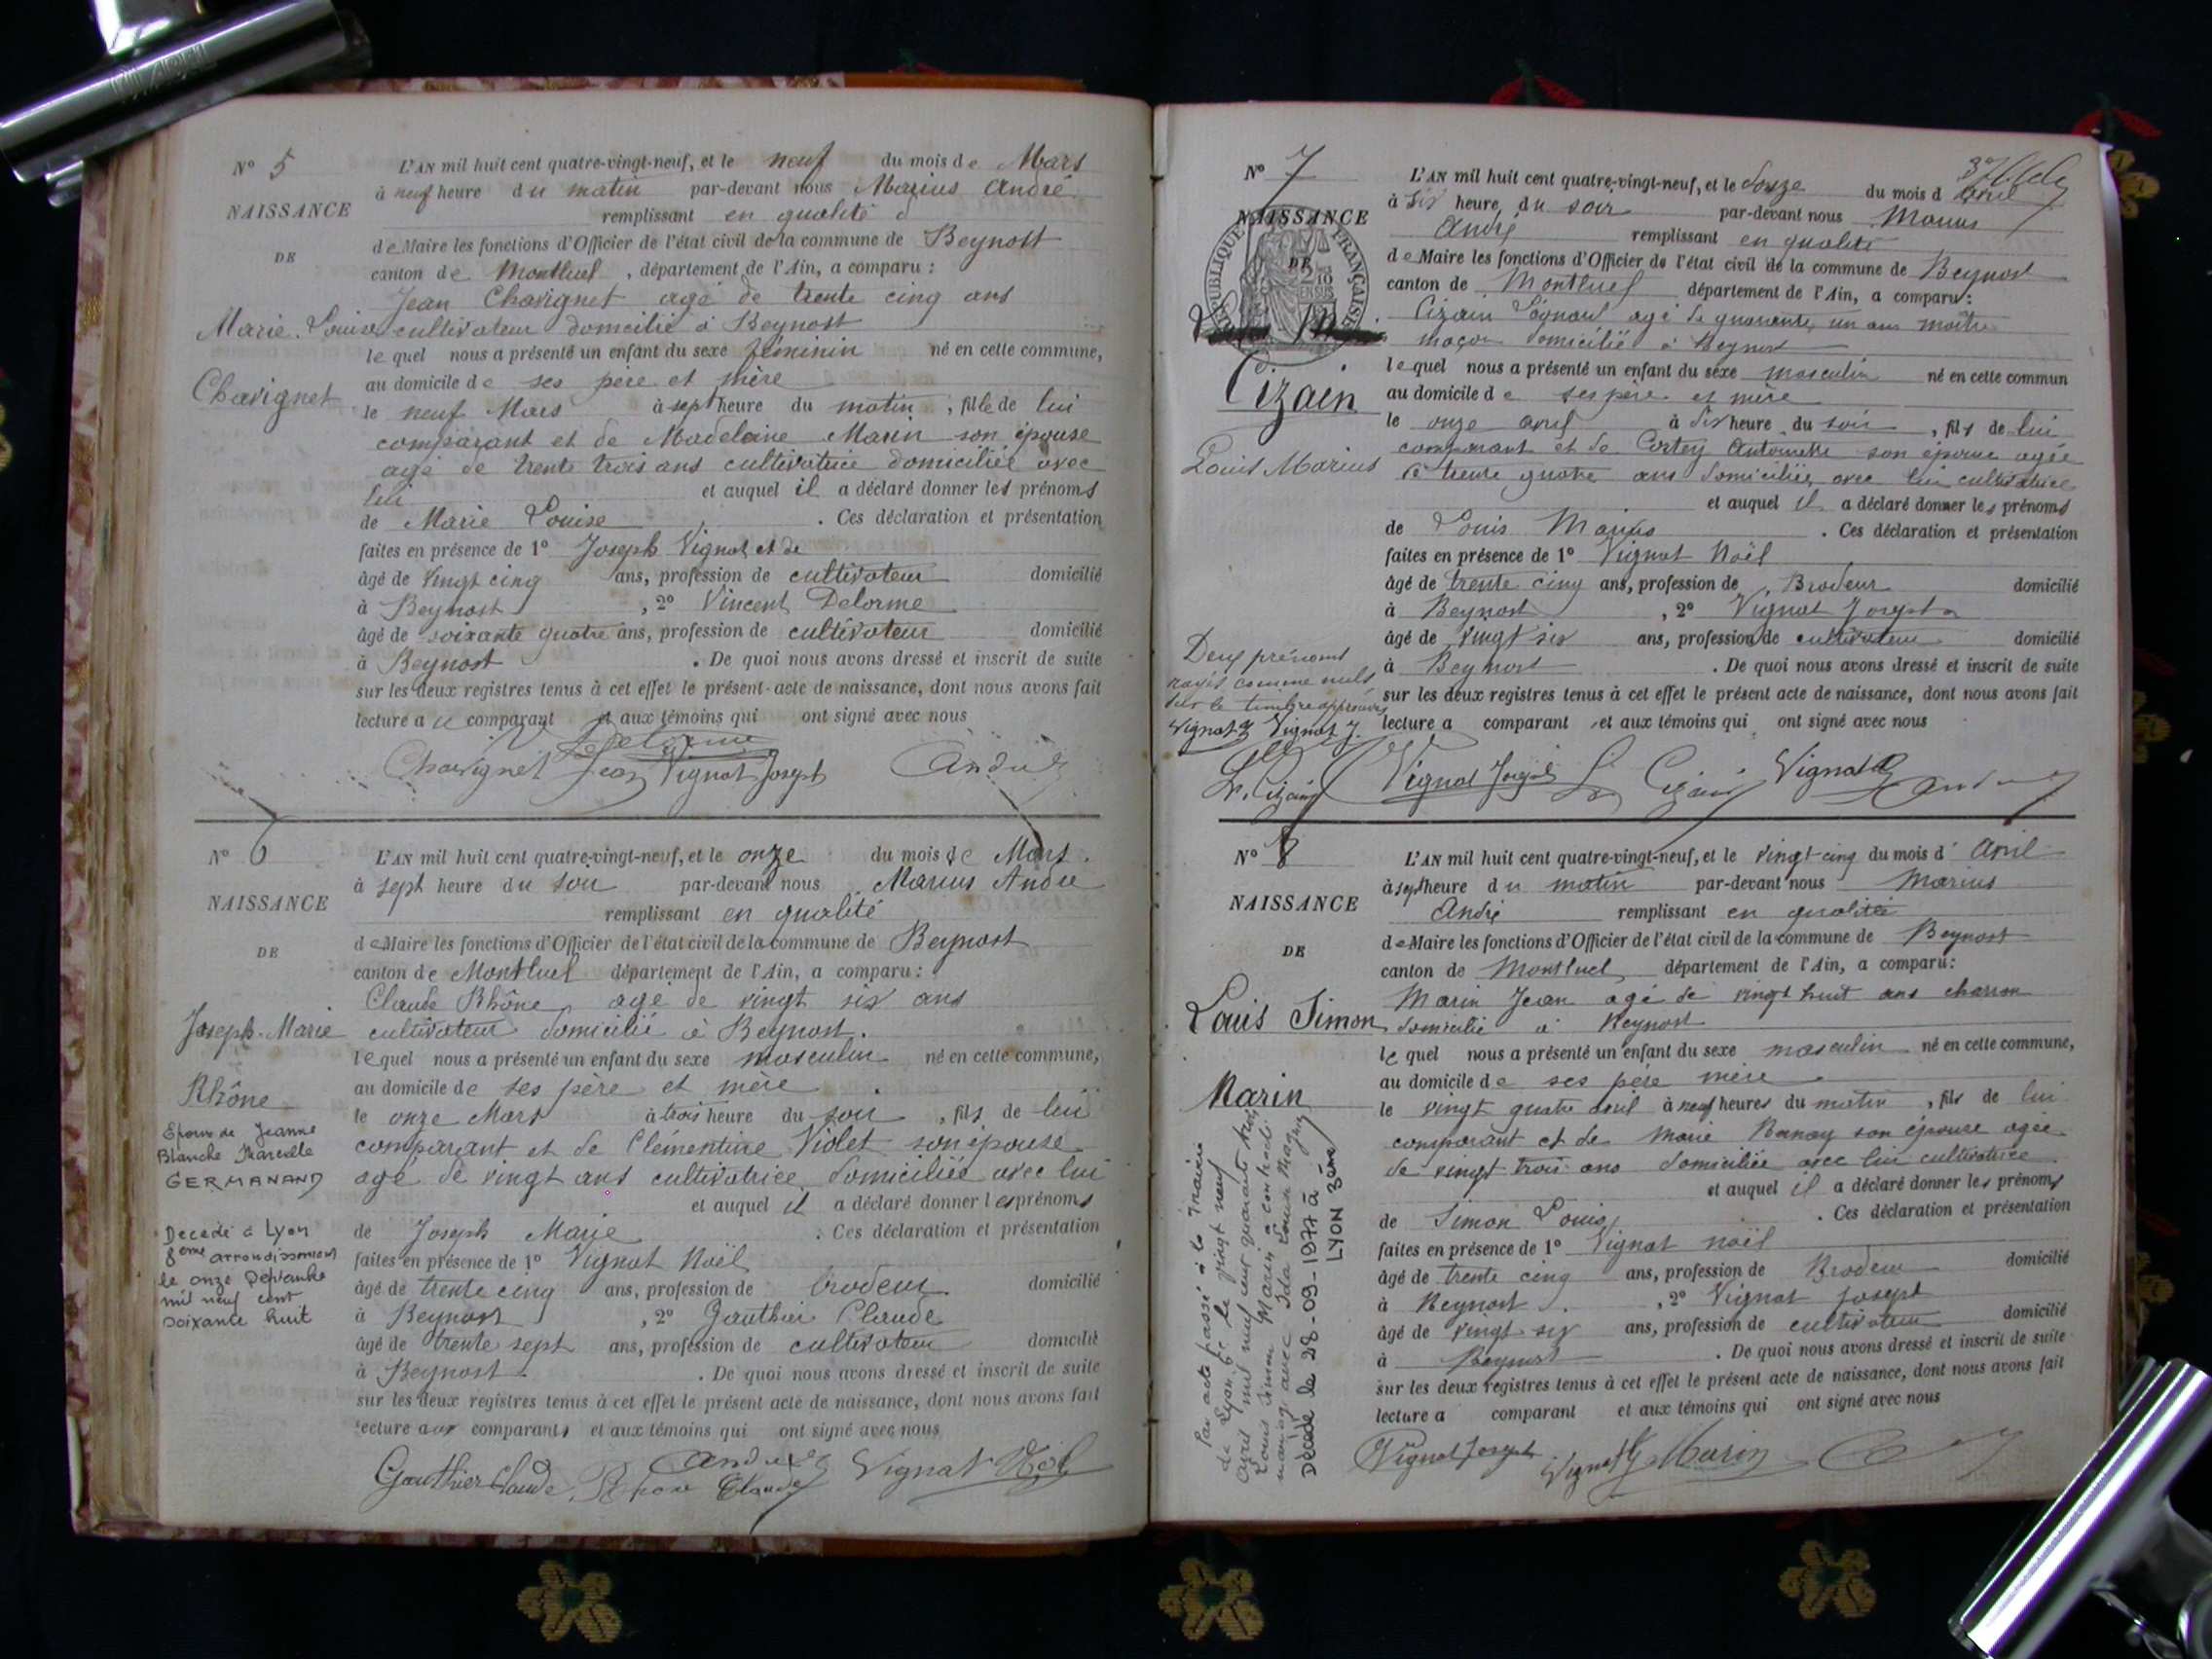 N° 5
NAISSANCE
DE
Marie Louise
Chavignet
L'AN mil huit cent quatre-vingt-neuf, et le neuf du mois de Mars
à neuf heure du matin par-devant nous Marius André
remplissant en qualité d
de Maire les fonctions d'Officier de l'état civil de la commune de Beynost
canton de Montluel, département de l'Ain, a comparu :
Jean Chavignet agé de trente cinq ans
cultivateur domicilié à Beynost
le quel nous a présenté un enfant du sexe féminin né en cette commune,
au domicile de ses père et mère
le neuf Mars à sept heure du matin, fille de lui
comparant et de Madeleine Marin son épouse
agé de trente trois ans cultivatrice domiciliée avec
lui et auquel il a déclaré donner les prénoms
de Marie Louise. Ces déclaration et présentation
faites en présence de 1° Joseph Vignat et de
âgé de vingt cinq ans, profession de cultivateur domicilié
à Beynost, 2° Vincent Delorme
âgé de soixante quatre ans, profession de cultivateur domicilié
à Beynost. De quoi nous avons dressé et inscrit de suite
sur les deux registres tenus à cet effet le présent acte de naissance, dont nous avons fait
lecture au comparant et aux témoins qui ont signé avec nous
Delorme
Chavignet Jean Vignat Joseph André
N° 6
NAISSANCE
DE
Joseph-Marie
Rhône
Epoux de Jeanne
Blanche Marcelle
GERMANAND
Décédé à Lyon
8ème arrondissement
le onze Septembre
mil neuf cent
soixante huit
L'AN mil huit cent quatre-vingt-neuf, et le onze du mois de Mars.
à sept heure du soir par-devant nous Marius André
remplissant en qualité
de Maire les fonctions d'Officier de l'état civil de la commune de Beynost
canton de Montluel département de l'Ain, a comparu :
Claude Rhône agé de vingt six ans
cultivateur domicilié à Beynost.
lequel nous a présenté un enfant du sexe masculin né en cette commune,
au domicile de ses père et mère
le onze Mars à trois heure du soir, fils de lui
comparant et de Clémentine Violet son épouse
agé de vingt ans cultivatrice domiciliée avec lui
et auquel il a déclaré donner les prénoms
de Joseph Marie. Ces déclaration et présentation
faites en présence de 1° Vignat Noël
âgé de trente cinq ans, profession de brodeur domicilié
à Beynost, 2° Gauthier Claude
âgé de trente sept ans, profession de cultivateur domicilié
à Beynost. De quoi nous avons dressé et inscrit de suite
sur les deux registres tenus à cet effet le présent acte de naissance, dont nous avons fait
lecture aux comparants et aux témoins qui ont signé avec nous
Gauthier Claude Rhône Claude André Vignat Noël
N° 7
NAISSANCE
DE
RÉPUBLIQUE FRANÇAISE
Cizain
Louis Marius
Deux prénoms
rayés comme nuls
sur le timbre approuvés
Vignat Vignat J.
L'AN mil huit cent quatre-vingt-neuf, et le douze du mois d avril
à six heure du soir par-devant nous Marius
André remplissant en qualité
de Maire les fonctions d'Officier de l'état civil de la commune de Beynost
canton de Montluel département de l'Ain, a comparu :
Cizain agé de quarante un ans maître
maçon domicilié à Beynost
lequel nous a présenté un enfant du sexe masculin né en cette commun
au domicile de ses père et mère
le onze avril à dix heure du soir, fils de lui
comparant et de Cortey Antoinette son épouse agée
de trente quatre ans domiciliée avec lui cultivatrice
et auquel il a déclaré donner les prénoms
de Louis Marius. Ces déclaration et présentation
faites en présence de 1° Vignat Noël
âgé de trente cinq ans, profession de Brodeur domicilié
à Beynost, 2° Vignat Joseph
âgé de vingt six ans, profession de cultivateur domicilié
à Beynost. De quoi nous avons dressé et inscrit de suite
sur les deux registres tenus à cet effet le présent acte de naissance, dont nous avons fait
lecture a comparant et aux témoins qui ont signé avec nous
Cizain Vignat Joseph Cizain Vignat André
N° 8
NAISSANCE
DE
Louis Simon
Marin
Par acte passé à la Mairie
de Lyon 6e le vingt neuf
avril mil neuf cent quarante
Louis Simon Marin a contracté
mariage avec Ida Louise
Décédé le 28-09-1977 à
LYON 3ème
L'AN mil huit cent quatre-vingt-neuf, et le vingt-cinq du mois d' Avril
à sept heure du matin par-devant nous Marius
André remplissant en qualité
de Maire les fonctions d'Officier de l'état civil de la commune de Beynost
canton de Montluel département de l'Ain, a comparu :
Marin Jean agé de vingt huit ans charron
domicilié à Beynost
le quel nous a présenté un enfant du sexe masculin né en cette commune,
au domicile de ses père mère
le vingt quatre avril à neuf heures du matin, fils de lui
comparant et de Marie son épouse agée
de vingt trois ans domiciliée avec lui cultivatrice
et auquel il a déclaré donner les prénoms
de Simon Louis. Ces déclaration et présentation
faites en présence de 1° Vignat noël
âgé de trente cinq ans, profession de Brodeur domicilié
à Beynost, 2° Vignat Joseph
âgé de vingt-six ans, profession de cultivateur domicilié
à Beynost. De quoi nous avons dressé et inscrit de suite
sur les deux registres tenus à cet effet le présent acte de naissance, dont nous avons fait
lecture a comparant et aux témoins qui ont signé avec nous
Vignat Joseph Vignat Marin